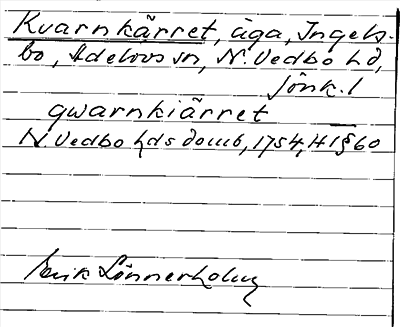 Kvarnkärret, äga, Ingels-
bo, Adelövs sn, N. Vedbo hd,
Jönk. l
qwarnkiärret
N Vedbo hds domb, 1754, H1§60
Erik Lönnerholm